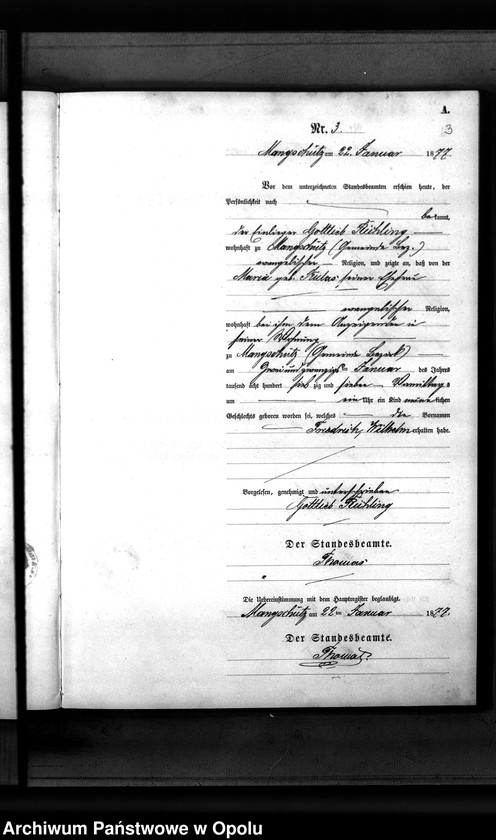 A.
Nr. 3.
3
Mangschütz am 22. Januar 1877.
Vor dem unterzeichneten Standesbeamten erschien heute, der
Persönlichkeit nach
bekannt,
der Einlieger Gottlieb
wohnhaft zu Mangschütz (Gemeinde Bez.)
evangelischer Religion, und zeigte an, daß von der
Maria geb. Kulas seiner Ehefrau
evangelischer Religion,
wohnhaft bei ihm dem Anzeigenden in
seiner Wohnung
zu Mangschütz (Gemeinde Bezirk)
am ten Januar des Jahres
tausend acht hundert siebzig und sieben Vormittags
um ein Uhr ein Kind männlichen
Geschlechts geboren worden sei, welches die Vornamen
Friedrich, Wilhelm erhalten habe.
Vorgelesen, genehmigt und unterschrieben
Gottlieb
Der Standesbeamte.
Thomas
Die Uebereinstimmung mit dem Hauptregister beglaubigt.
Mangschütz am 22 ten Januar 1877.
Der Standesbeamte.
Thomas.
Archiwum Państwowe w Opolu